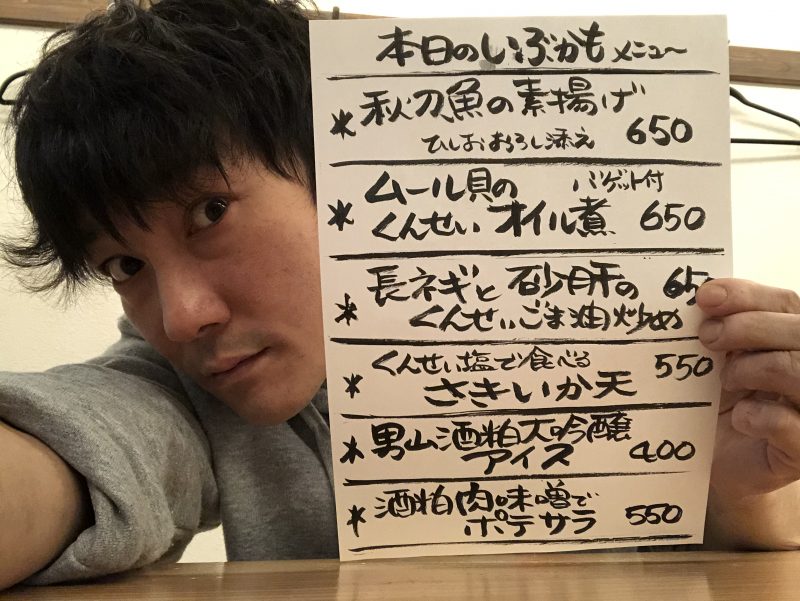 本日のいぶかもメニュ〜
*秋刀魚の素揚げ
ひしおおろし添え 650
*ムール貝の バゲット付
くんせいオイル煮 650
*長ネギと砂肝の 650
くんせいごま油炒め
*くんせい塩で食べる 550
さきいか天
*男山酒粕大吟醸
アイス 400
*酒粕肉味噌で
ポテサラ 550